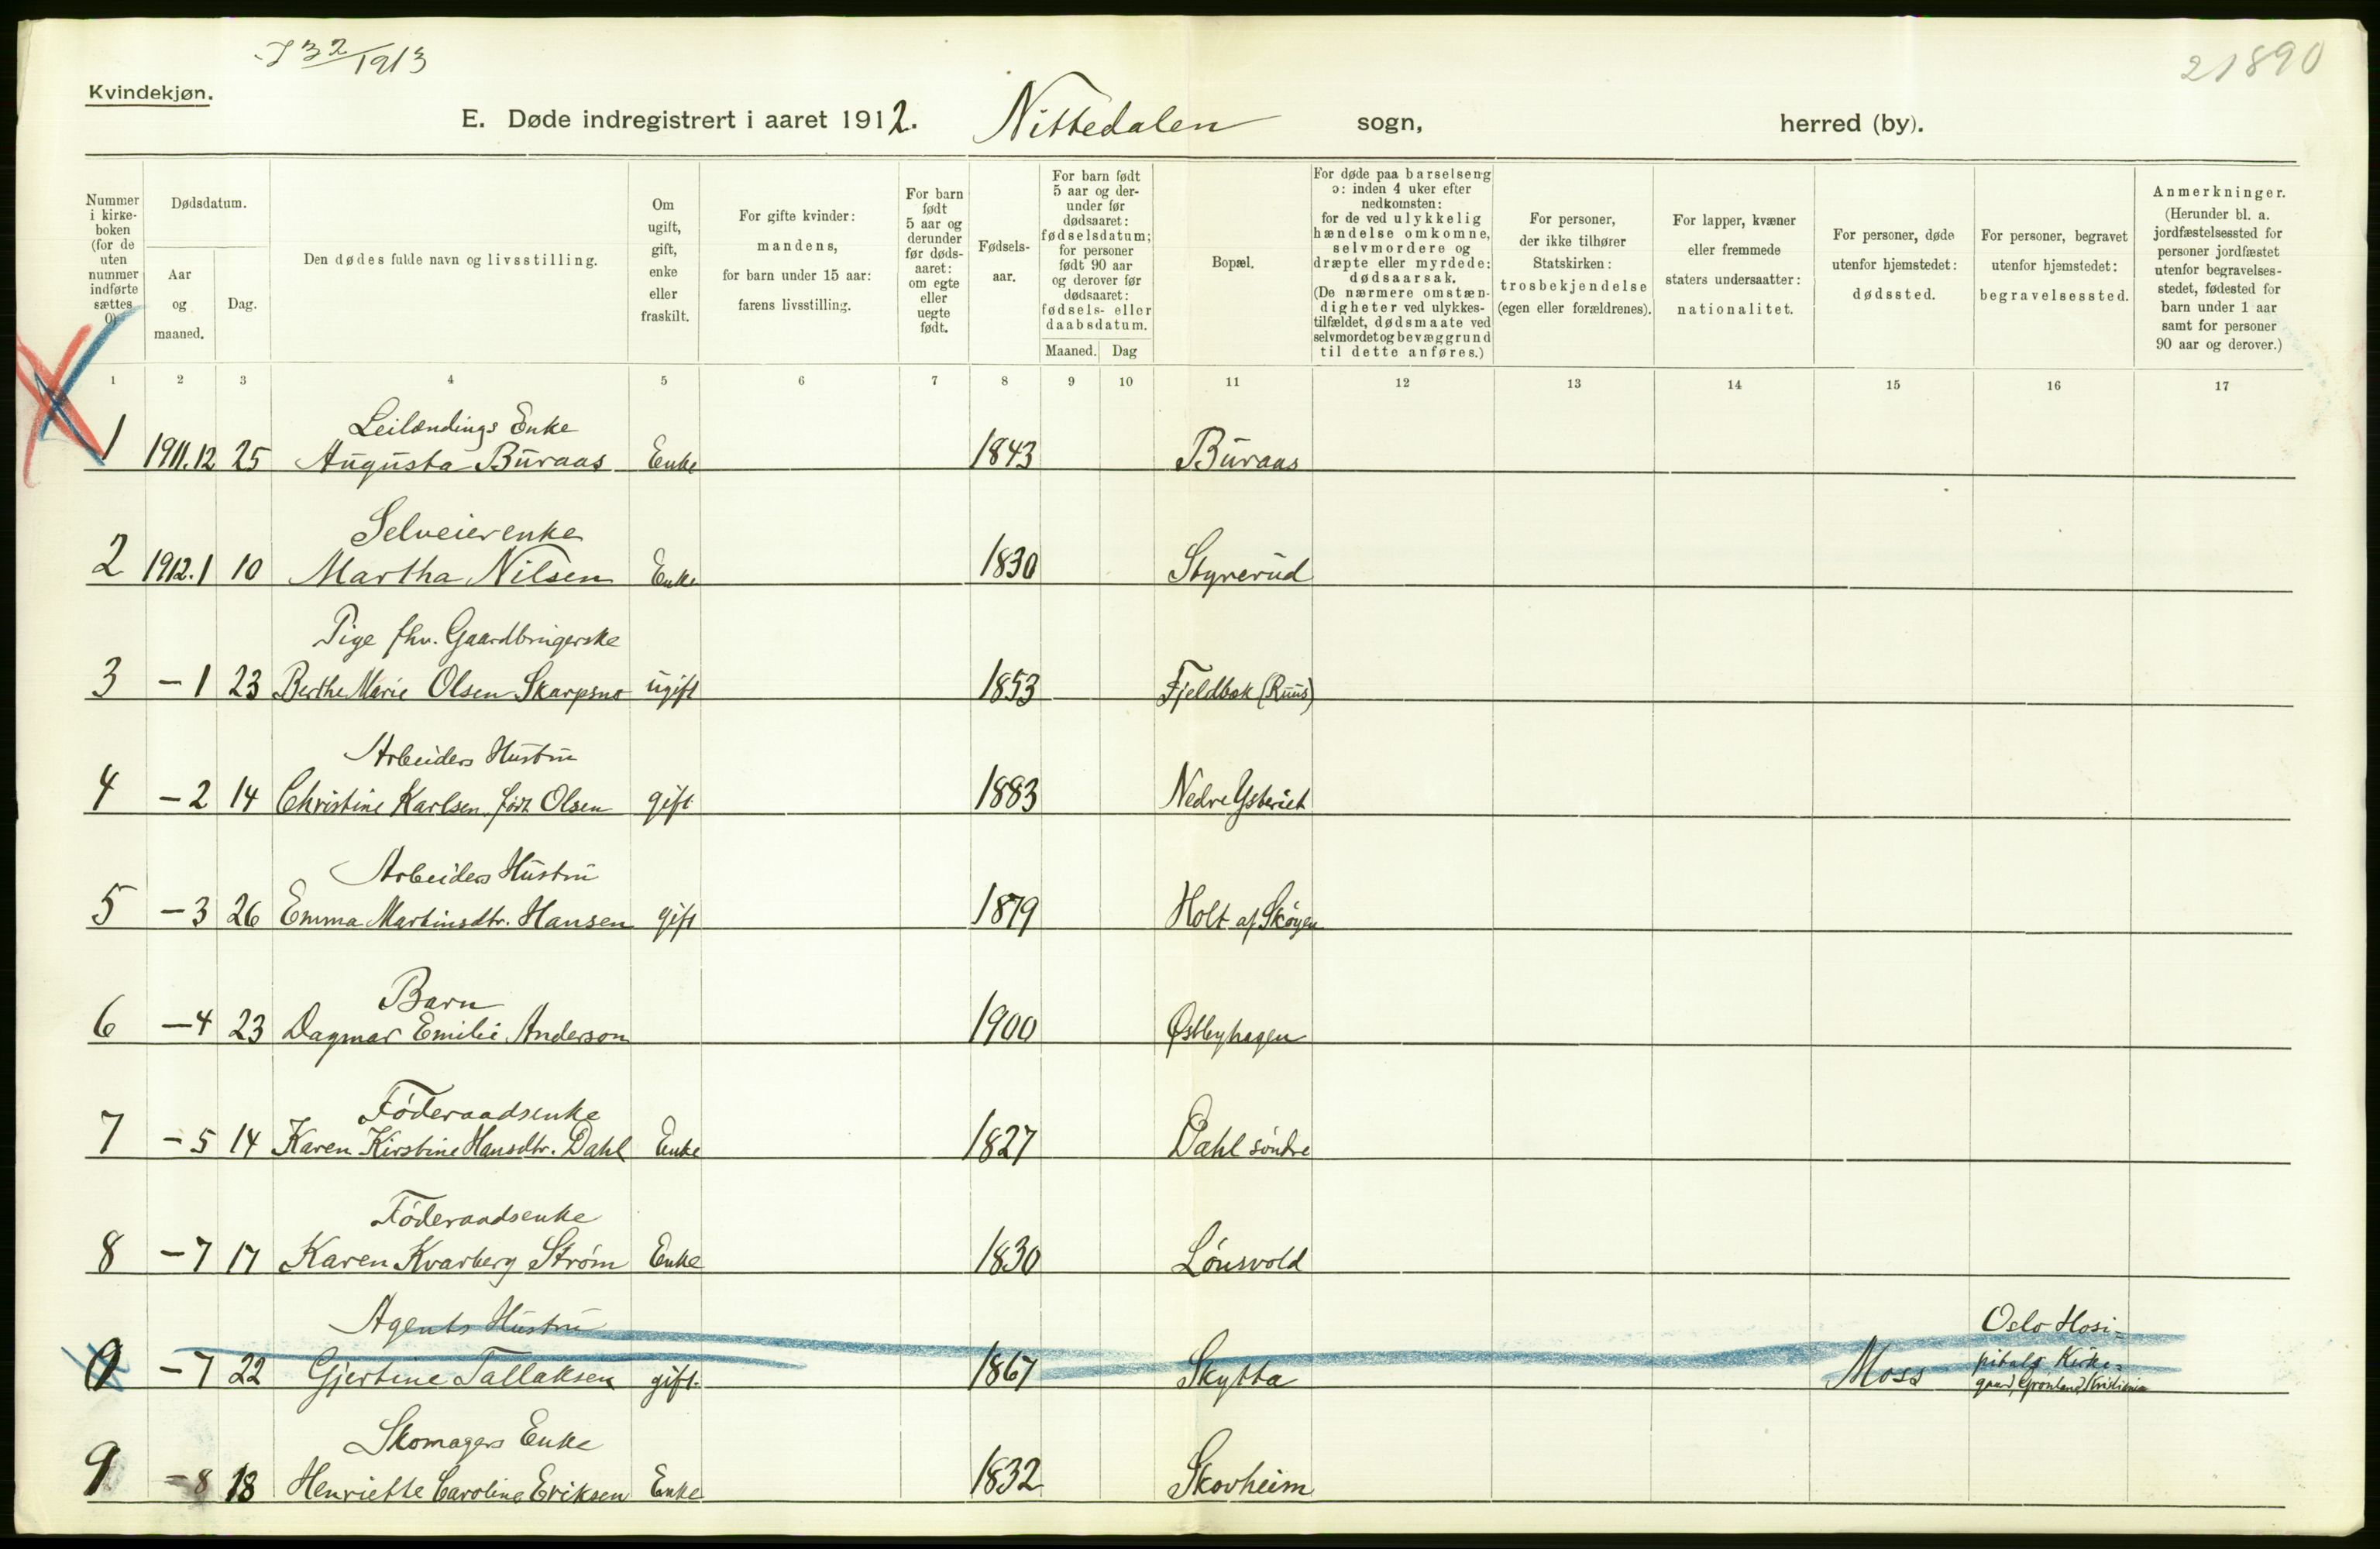 J 32/1913
21890
Kvindekjøn.
E. Døde indregistrert i aaret 1912. Nittedalen sogn, herred (by).
Nummer i kirke- boken (for de uten nummer indførte sættes 0)
Dødsdatum.
Aar og maaned.
Dag.
Den dødes fulde navn og livsstilling.
Om ugift, gift, enke eller fraskilt.
For gifte kvinder: mandens, for barn under 15 aar: farens livsstilling.
For barn født 5 aar og derunder før døds- aaret: om egte eller uegte født.
Fødsels- aar.
For barn født 5 aar og der- under før dødsaaret: fødselsdatum; for personer født 90 aar og derover før dødsaaret: fødsels- eller daabsdatum.
Maaned. Dag
Bopæl.
For døde paa barselseng ɔ: inden 4 uker efter nedkomsten: for de ved ulykkelig hændelse omkomne, selvmordere og dræpte eller myrdede: dødsaarsak. (De nærmere omstæn- digheter ved ulykkes- tilfældet, dødsmaate ved selvmordet og bevæggrund til dette anføres.)
For personer, der ikke tilhører Statskirken: trosbekjendelse (egen eller forældrenes).
For lapper, kvæner eller fremmede staters undersaatter: nationalitet.
For personer, døde utenfor hjemstedet: dødssted.
For personer, begravet utenfor hjemstedet: begravelsessted.
Anmerkninger. (Herunder bl. a. jordfæstelsessted for personer jordfæstet utenfor begravelses- stedet, fødested for barn under 1 aar samt for personer 90 aar og derover.)
1 2 3 4 5 6 7 8 9 10 11 12 13 14 15 16 17
Leilændings Enke
1 1911.12 25 Augusta Buraas Enke 1843 Buraas
Selveierenke
2 1912.1 10 Martha Nilsen Enke 1830 Styrerud
Pige fhv. Gaardbrugerske
3 -1 23 Berthe Marie Olsen Skarpsno ugift 1853 Fjeldbak (Ruus)
Arbeiders Hustru
4 -2 14 Christine Karlsen, født Olsen gift 1883 Nedre
Arbeiders Hustru
5 -3 26 Emma Martinsdtr. Hansen gift 1879 Holt af Skøyen
Barn
6 -4 23 Dagmar Emilie Anderson 1900 Østbyhagen
Føderaadsenke
7 -5 14 Karen Kirstine Hansdtr. Dahl Enke 1827 Dahl søndre
Føderaadsenke
8 -7 17 Karen Kvarberg Strøm Enke 1830 Lønsvold
Agents Hustru Oslo Hosi=
0 -7 22 Gjertine Tallaksen gift 1867 Skytta Moss pitals Kirke=
gaard, Grønland, Kristiania
Skomagers Enke
9 -8 18 Henriette Caroline Eriksen Enke 1832 Skovheim